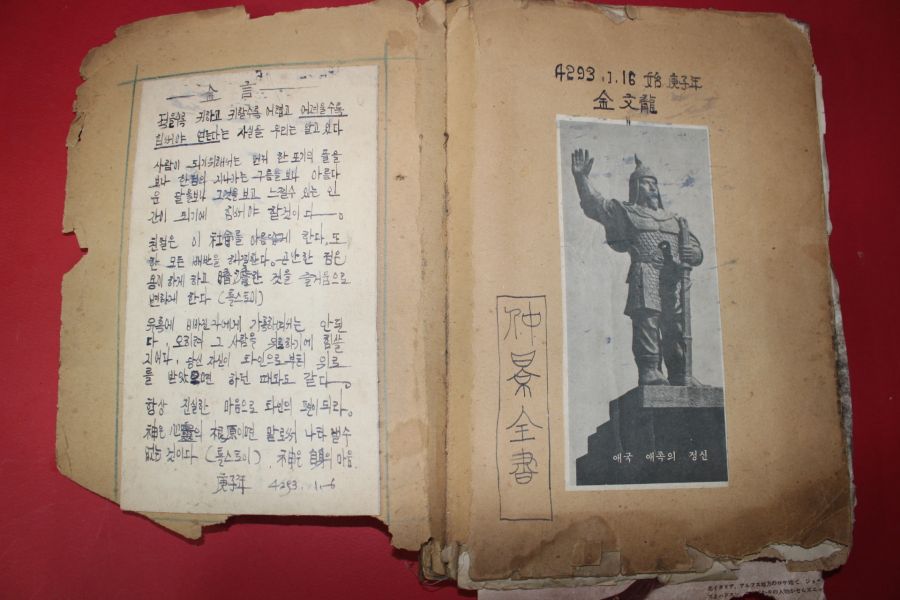 金言
적을수록 귀하고 귀할수록 어렵고 어려울수록
힘써야 얻는다는 사실을 우리는 알고 있다
사람이 되기위해서는 먼저 한 포기의 풀을
보나 한점의 지나가는 구름을보나 아름다
운 달을보나 그것을보고 느낄수 있는 인
간이 되기에 힘써야 할것이다
친절은 이 社會를 아름답게 한다. 또
한 모든 해결한다. 곤란한 점은
용이하게 하고 暗한 것을 즐거움으로
변하게 한다 (톨스토이)
유혹에 빠진 자에게 가혹하여서는 안된
다. 오히려 그 사람을 위로하기에 힘쓸
지어다. 당신 자신이 타인으로부터 위로
를 받았으면 하던 때와도 같다
항상 진실한 마음으로 타인의 편이되라.
神은 心靈의 根原이며 말로써 나타낼수
없는 것이다 (톨스토이). 神은 自身의 마음.
庚子年 4293. 1. 6
4293.1.16 始 庚子年
金文龍
仲景全書
애국 애족의 정신